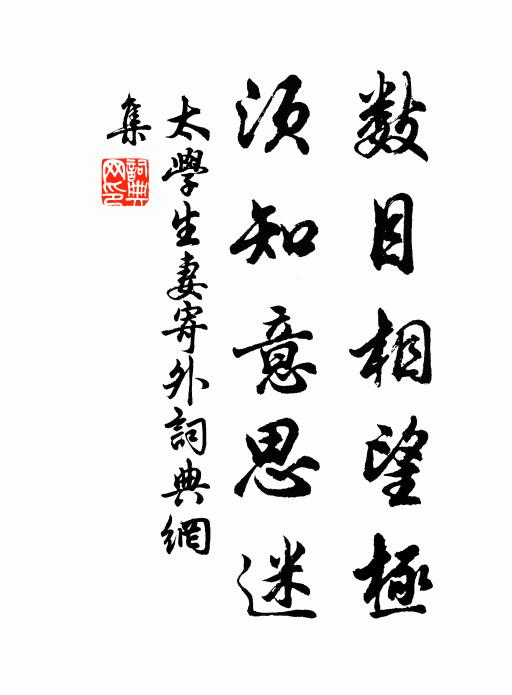 数目相望極
須知意思迷
太學生妻寄外詞典網
集
詞典網印